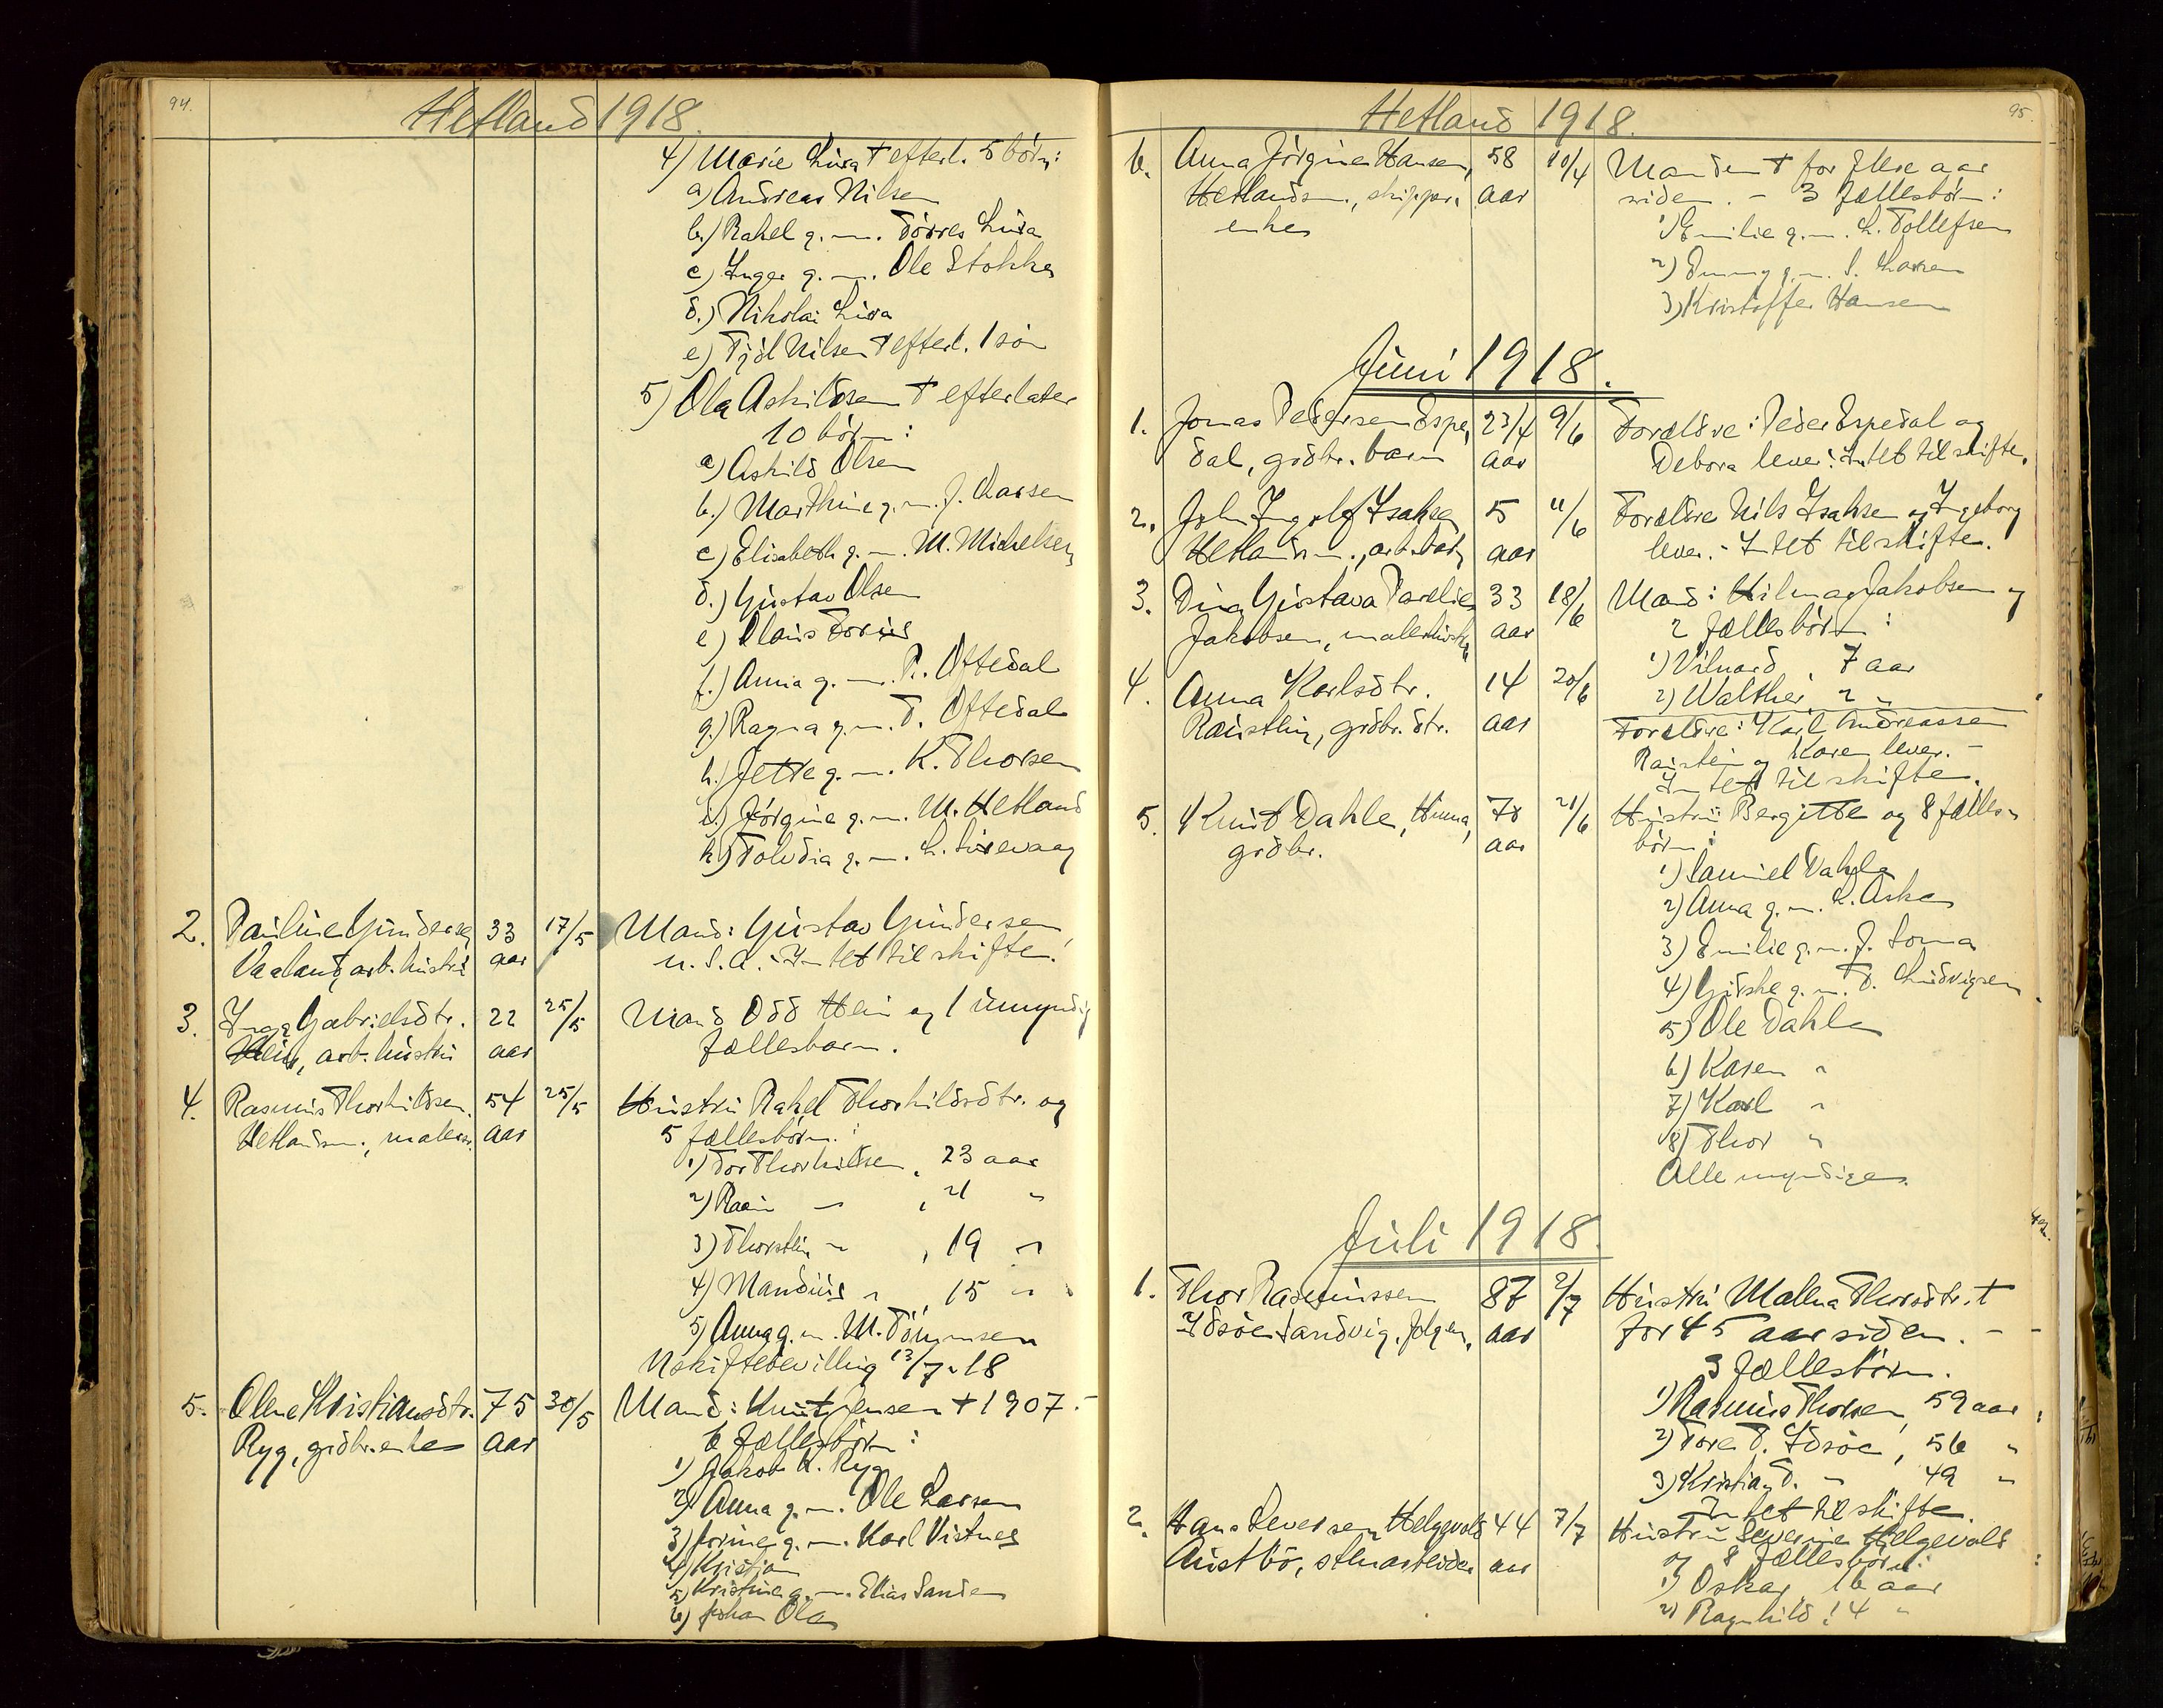 94.
Hetland 1918.
4) Marie Lura † efterl. 5 børn:
a) Andreas Nilsen
b.) Rahel g. m. Tørres Lura
c) Inger g. m. Ole Stokka
d.) Nikolai Lura
e) Tjøl Nilsen † efterl. 1 søn
5) Ola Askildsen † efterlater
10 børn:
a) Askild Olsen
b.) Marthine g. m. J. Larsen
c) Elisabeth g. m. M. Michelsen
d.) Gustav Olsen
e) Claus
f.) Anna g. m. R. Oftedal
g.) Ragna g. m. T. Oftedal
h.) Jette g. m. K. Thorsen
i.) Jørgine g. m. M. Hetland
k) g. m. L. Sirevaag
2. Pauline Gundersen 33 17/5 Mand: Gustav Gundersen,
Vaaland, arb. hustru aar U.S.A. Intet til skifte.
3. Inga Gabrielsdtr. 22 25/5 Mand Odd Hein og 1 umyndig
Hein, arb. hustru aar fællesbarn.
4. Rasmus Thorkildsen 54 25/5 Hustru Rakel Thorkildsdtr. og
Hetlandsm., maler aar 5 fællesbørn:
1) Tor Thorkildsen, 23 aar
2) " , 21 "
3) Thorstein " , 19 "
4) Mandius " , 15 "
5) Anna g. m. M. Tönnesen
Uskiftebevilling 13/7-18
5. Olene Kristiansdtr. 75 30/5 Mand: Knut Jensen † 1907.-
Ryg, grdbr. enke aar 6 fællesbørn:
1) Jakob K. Ryg
2) Anna g. m. Ole Larsen
3) Jorine g. m. Karl Vistnes
4) Kristian
5) Kristine g. m. Elias Sande
6) Johan Ola
95.
Hetland 1918.
6. Anna Jörgine Hansen, 58 10/4 Manden † for flere aar
Hetlandsm., skippers aar siden. - 3 fællesbörn:
enke
1) Emilie g. m. L. Tollefsen
2) Emmy g. m. S. Larsen
3) Kristoffer Hansen
Juni 1918.
1. Jonas Pedersen Espe- 23/4 9/6 Forældre: Peder Espedal og
dal, grdbr. barn aar Debora lever: Intet til skifte.
2. John Ingolf Isaksen 5 11/6 Forældre Nils Isaksen og Ingeborg
Hetlandsm., arb. barn aar lever. - Intet til skifte.
3. Dina Gustava 33 18/6 Mand: Hilmar Jakobsen og
Jakobsen, malerhustru aar 2 fællesbörn:
1) Vilnard, 7 aar
2) Walther, 2 "
4. Anna Karlsdtr. 14 20/6 Forældre: Karl Andreassen
Raustein, grdbr. dtr. aar Raustein og Karen lever. -
Intet til skifte.
5. Knut Dahle, Hinna, 78 21/6 Hustru Bergitte og 8 fælles-
grdbr. aar börn:
1) Samuel Dahle
2) Anna g. m. L. Aske
3) Emilie g. m. J. Soma
4) Gurine g. m. T. Ludvigsen
5) Ole Dahle
6) Karen "
7) Karl "
8) Thor "
Alle myndige.
Juli 1918.
1. Thor Rasmussen 87 2/7 Hustru Malena Thorsdtr. †
Idsöe Sandvig, aar for 45 aar siden. - -
3 fællesbörn.
1) Rasmus Thorsen, 59 aar
2) Tore T. Idsöe, 56 "
3) Kristian T. " 49 "
Intet til skifte.
2. Hans Seversen Helgevold 44 7/7 Hustru Severine Helgevold
Austbö, aar og 8 fællesbörn:
1) Oskar, 16 aar
2) Ragnhild 14 "